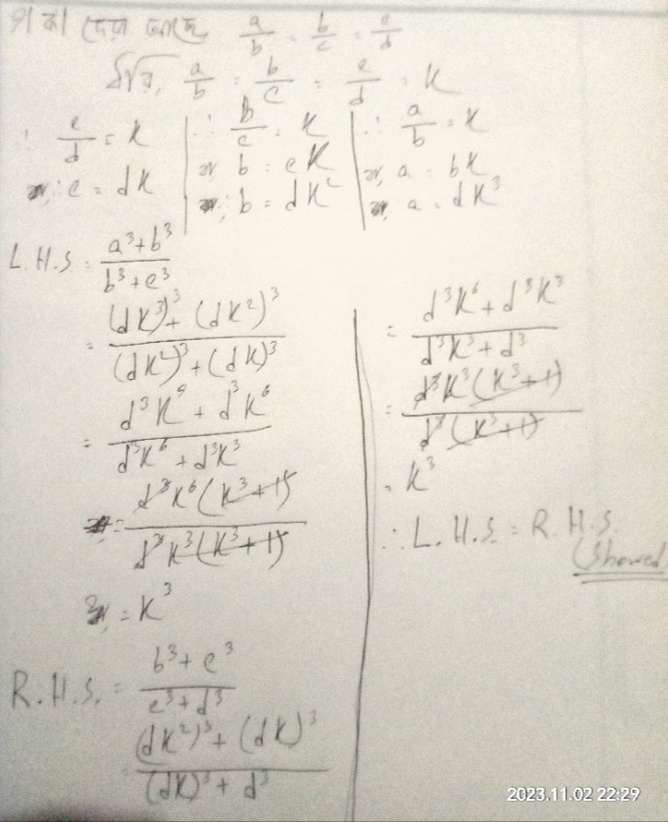 দেয়া আছে, a/b = b/c = c/d
ধরি, a/b = b/c = c/d = K
∴ c/d = K
∴ c = dK
∴ b/c = K
বা, b = cK
∴ b = dK²
∴ a/b = K
বা, a = bK
বা, a = dK³
L.H.S = (a³+b³)/(b³+c³)
= ((dK³)³ + (dK²)³)/((dK²)³ + (dK)³)
= (d³K⁹ + d³K⁶)/(d³K⁶ + d³K³)
= d³K⁶(K³+1)/d³K³(K³+1)
= K³
R.H.S. = (b³+c³)/(c³+d³)
= ((dK²)³ + (dK)³)/((dK)³ + d³)
= (d³K⁶ + d³K³)/(d³K³ + d³)
= d³K³(K³+1)/d³(K³+1)
= K³
∴ L.H.S. = R.H.S.
(Showed
2023.11.02 22:29